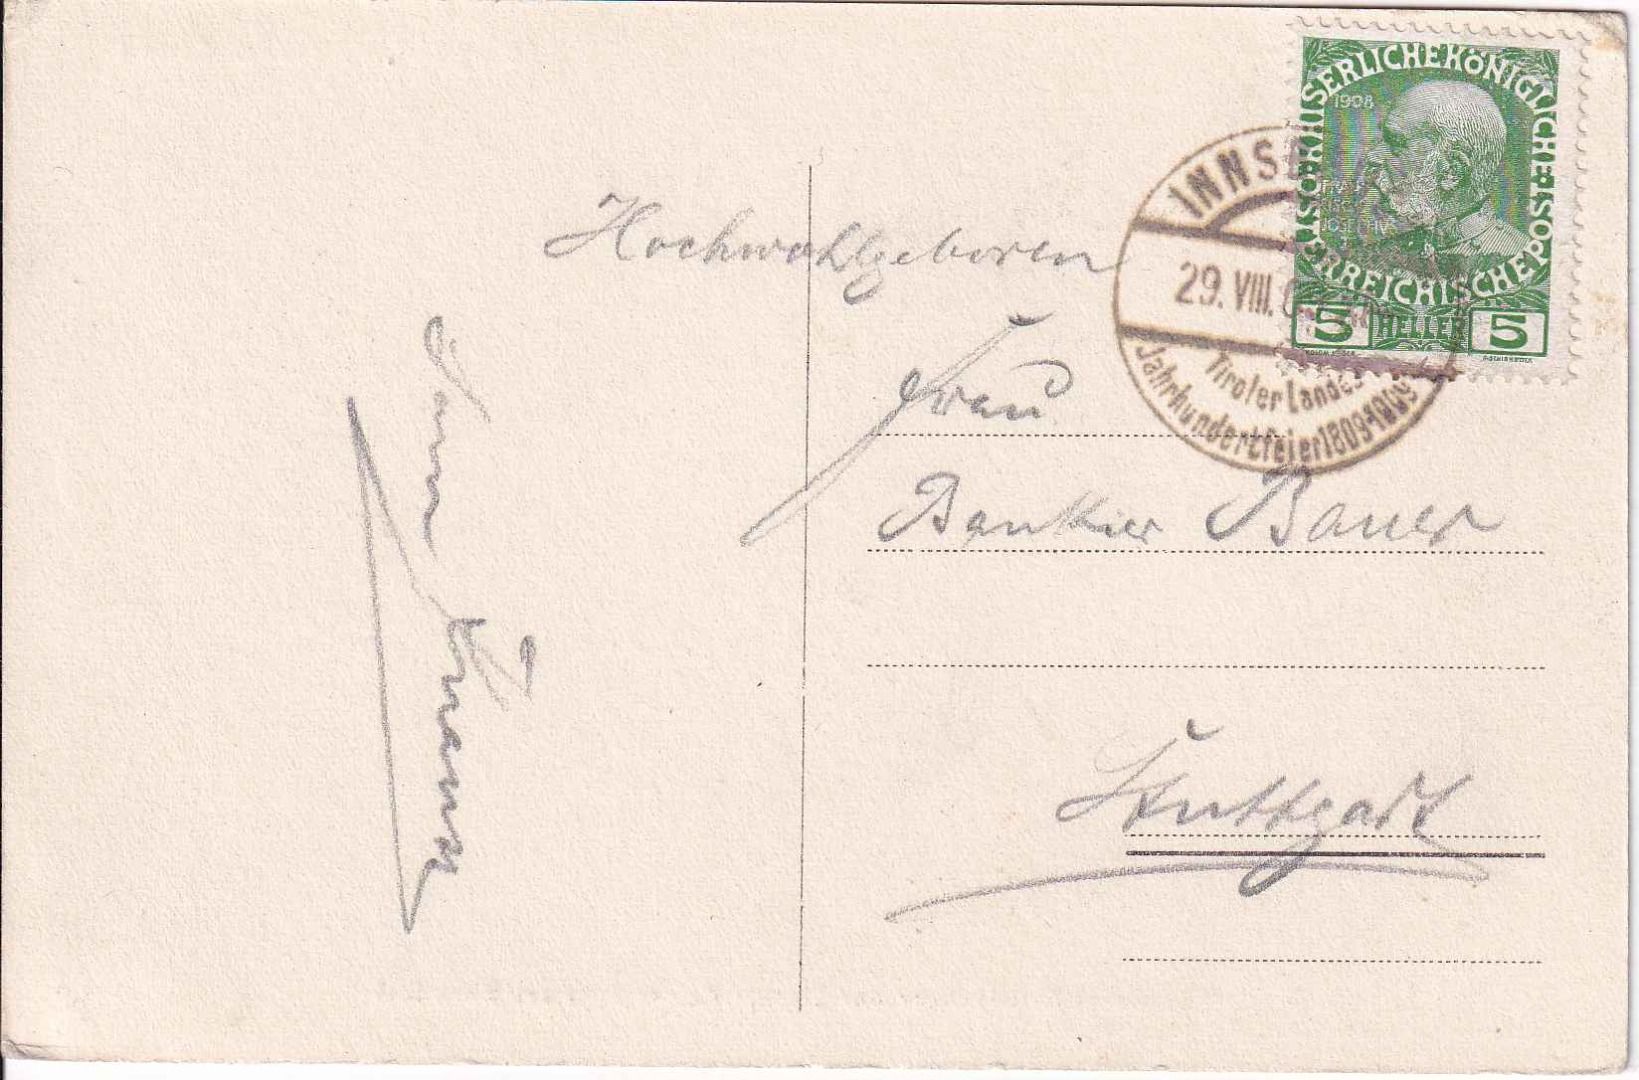 KAISERLICHEKÖNIGLICHE
ÖSTERREICHISCHE POST
1908
5 HELLER 5
INNSB
29. VIII.
Tiroler Landes
Jahrhundertfeier 1809-1909
Hochwohlgeboren
Frau
Bankier Bauer
Stuttgart